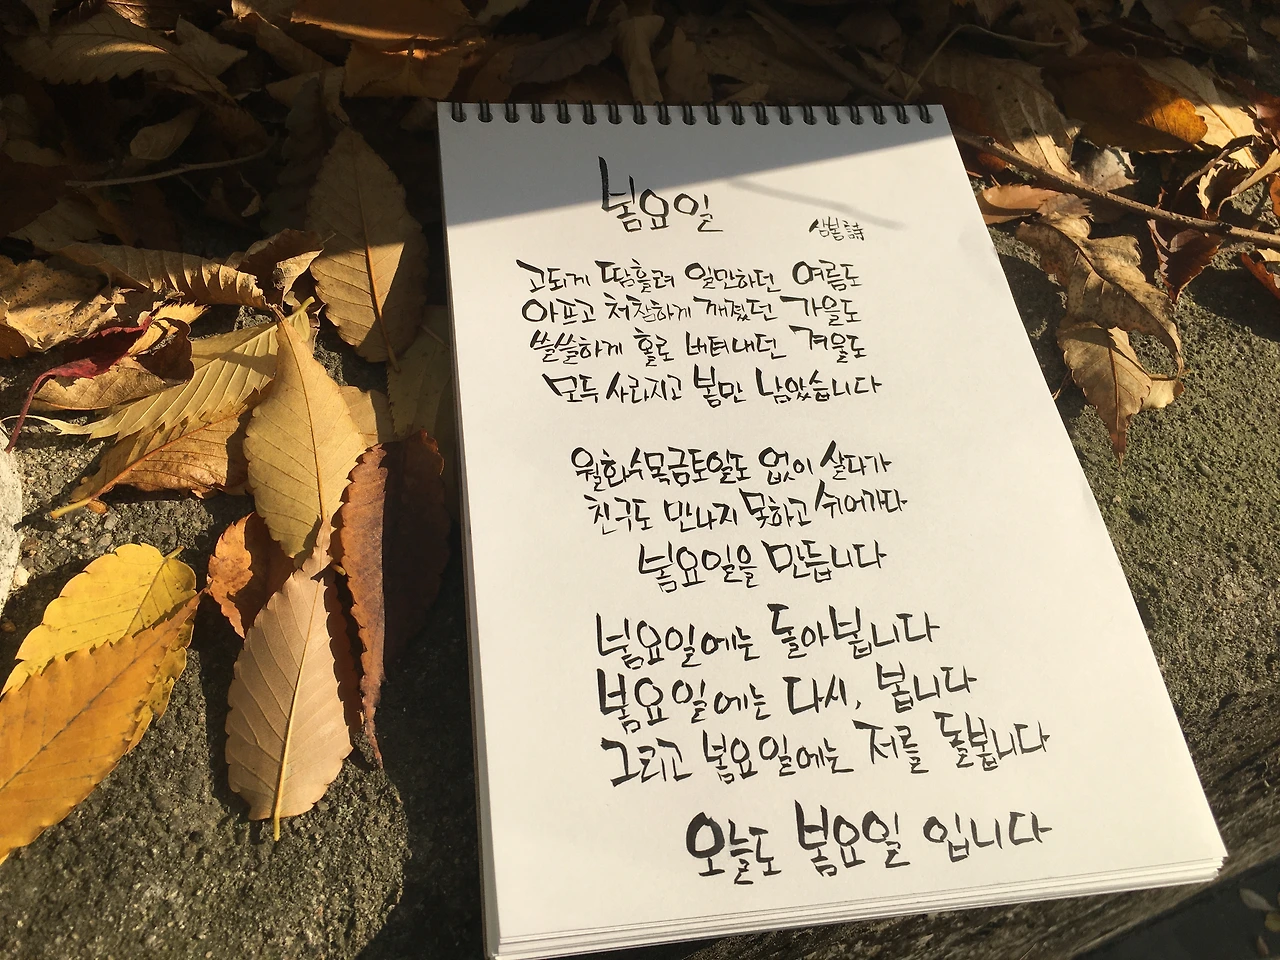 봄요일
심봉 詩
고되게 땀흘려 일만하던 여름도
아프고 처절하게 깨졌던 가을도
쓸쓸하게 홀로 버텨내던 겨울도
모두 사라지고 봄만 남았습니다
월화수목금토일도 없이 살다가
친구도 만나지 못하고 쉬어가다
봄요일을 만듭니다
봄요일에는 돌아봅니다
봄요일에는 다시, 봅니다
그리고 봄요일에는 저를 돌봅니다
오늘도 봄요일 입니다